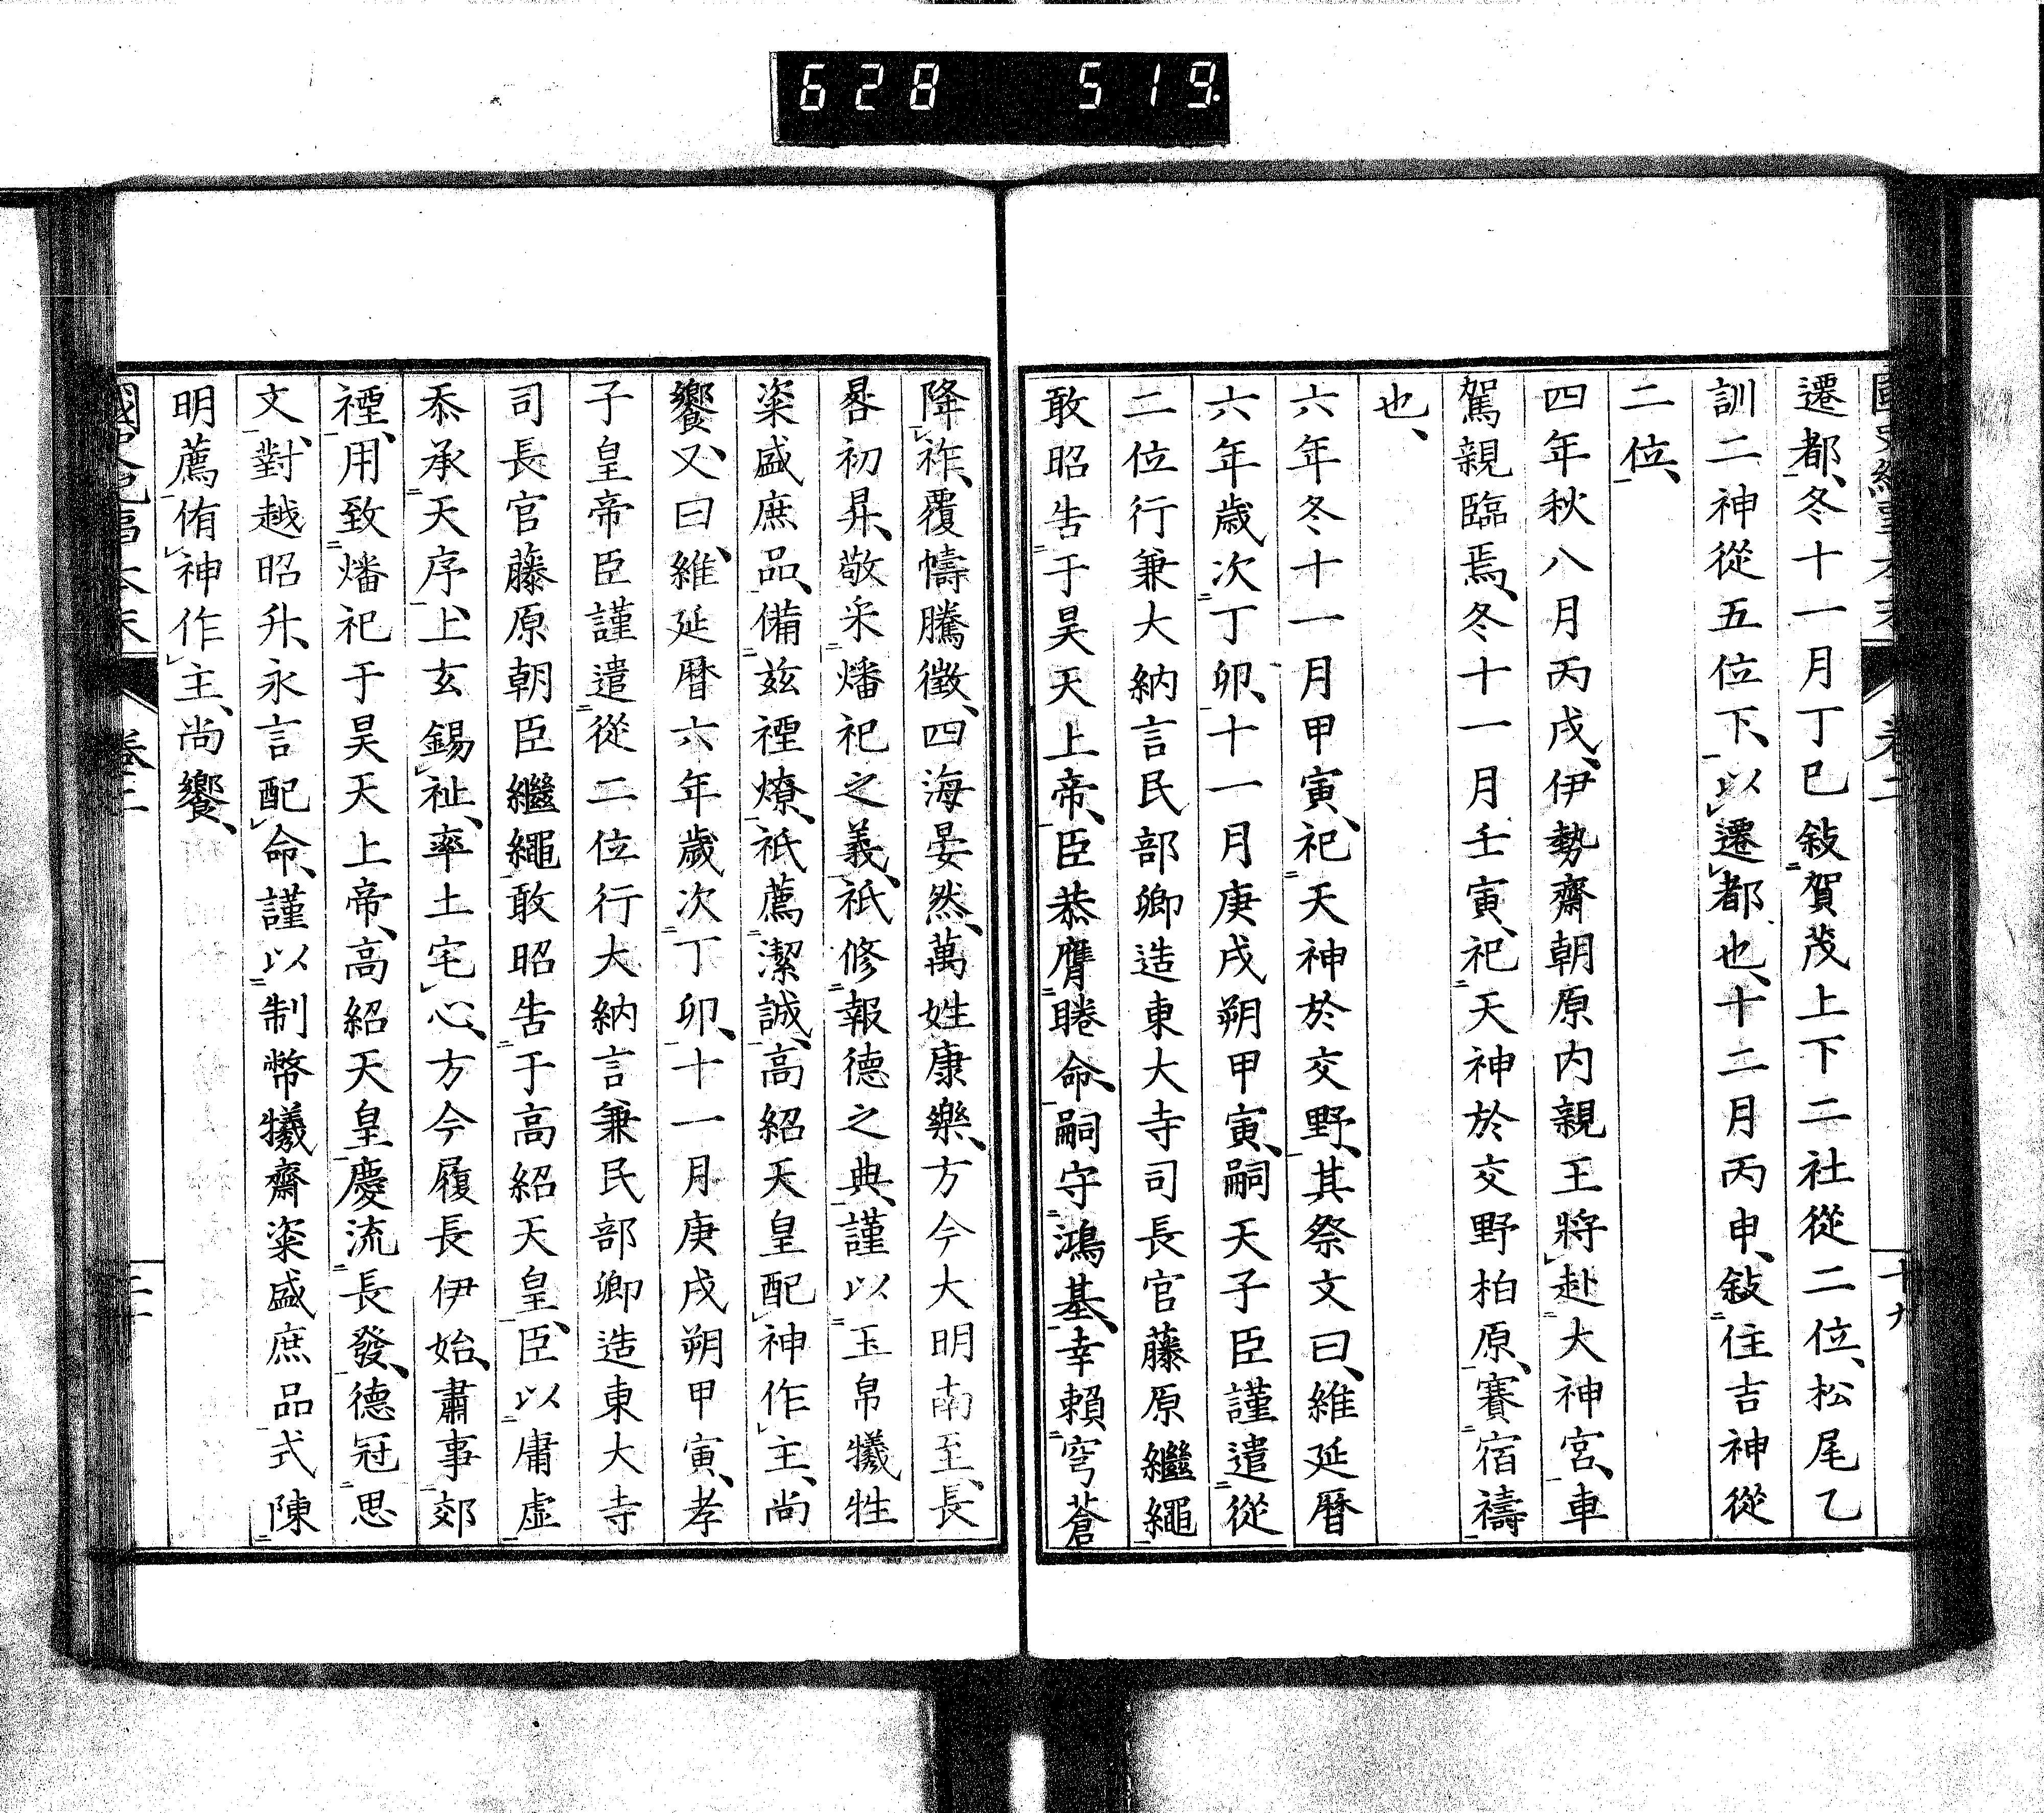 628 519
遷都、冬十一月丁巳敍賀茂上下二社從二位、松尾乙
訓二神從五位下、以遷都也、十二月丙申、敍住吉神從
二位、
四年秋八月丙戌、伊勢齋朝原内親王將赴大神宮、車
駕親臨焉、冬十一月壬寅、祀天神於交野柏原、賽宿禱
也、
六年冬十一月甲寅、祀天神於交野、其祭文曰、維延暦
六年歳次丁卯、十一月庚戌朔甲寅、嗣天子臣謹遣從
二位行兼大納言民部卿造東大寺司長官藤原繼繩
敢昭告于昊天上帝、臣恭膺睠命、嗣守鴻基、幸頼穹蒼
降祚、覆幬騰徵、四海晏然、萬姓康樂、方今大明南至、長
晷初昇、敬采燔祀之義、祇修報德之典、謹以玉帛犧牲
粢盛庶品、備茲禋燎、祇薦潔誠、高紹天皇配神作主、尚
饗、又曰、維延暦六年歲次丁卯、十一月庚戌朔甲寅、孝
子皇帝臣謹遣從二位行大納言兼民部卿造東大寺
司長官藤原朝臣繼繩敢昭告于高紹天皇、臣以庸虛
忝承天序、上玄錫祉、率土宅心、方今履長伊始、肅事郊
禋、用致燔祀于昊天上帝、高紹天皇慶流長發、德冠思
文、對越昭升、永言配命、謹以制幣犧齋粢盛庶品式陳
明薦侑神作主、尚饗、
卷三